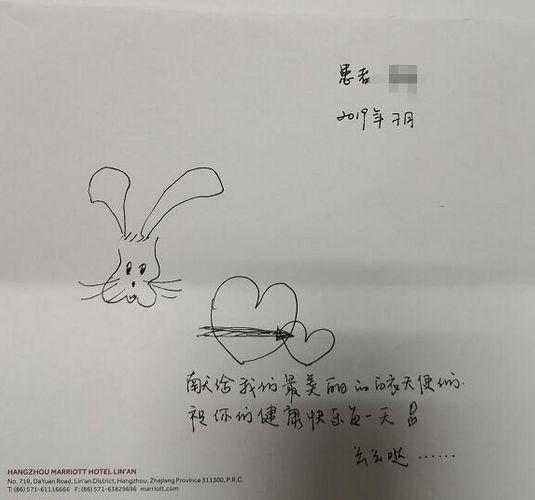 患者
2019年7月
献给我们最美丽的白衣天使们.
祝你们健康快乐每一天
么么哒······
HANGZHOU MARRIOTT HOTEL LIN'AN
No. 719, DaYuan Road, Lin'an District, Hangzhou, Zhejiang Province 311300, P.R.C.
T: (86) 571-61116666 F: (86) 571-63829696 marriott.com